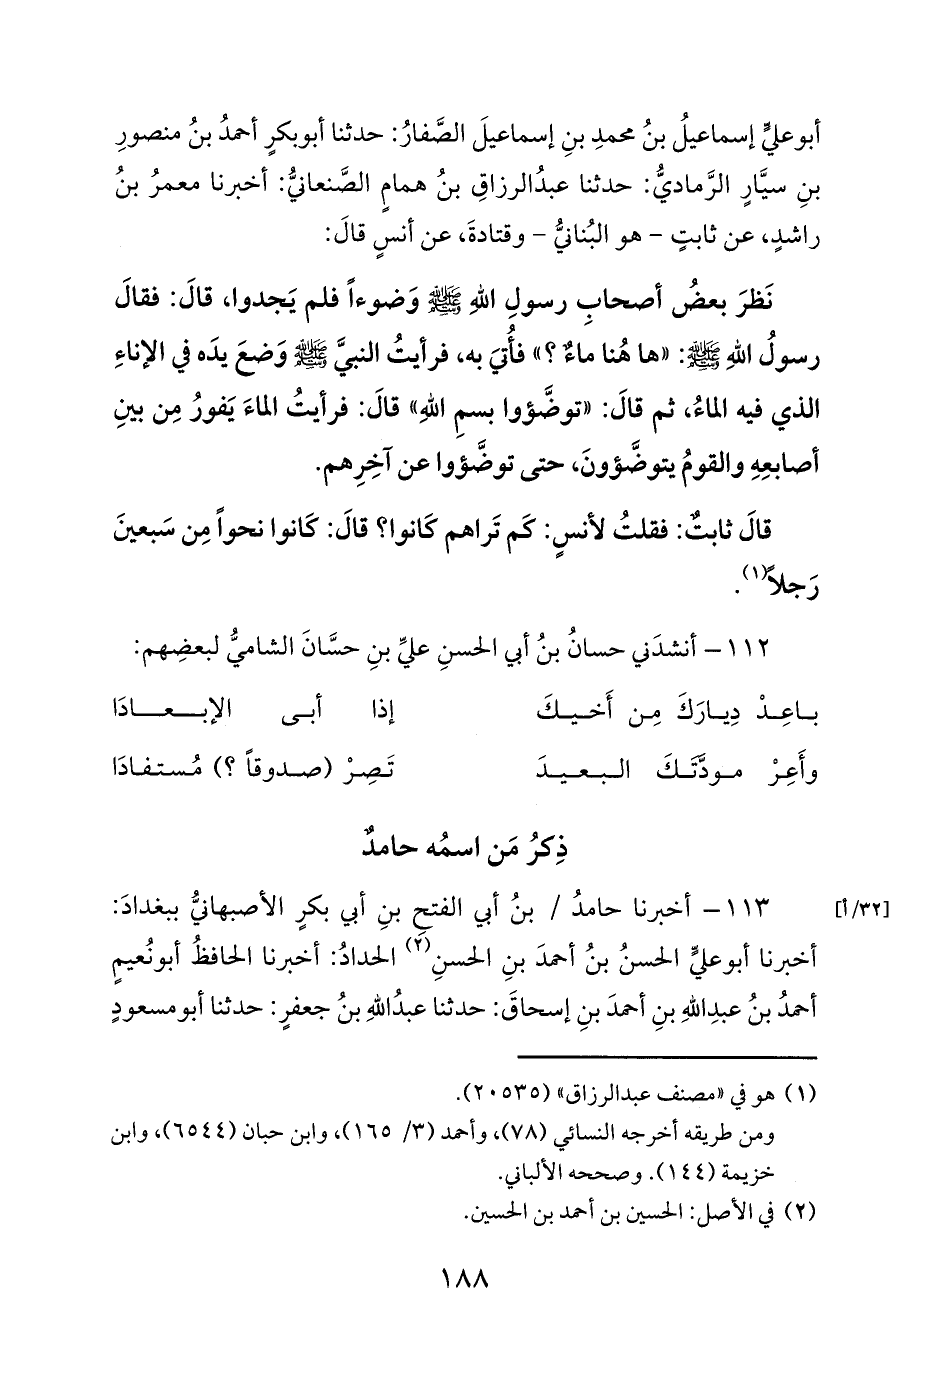 أبو عليٍّ إسماعيلُ بنُ محمدِ بنِ إسماعيلَ الصَّفارُ: حدثنا أبوبكرٍ أحمدُ بنُ منصورِ
بنِ سيَّارٍ الرَّماديُّ: حدثنا عبدُالرزاقِ بنُ همامٍ الصَّنعانيُّ: أخبرنا معمرُ بنُ
راشدٍ، عن ثابتٍ – هو البُنانيُّ – وقتادةَ، عن أنسٍ قالَ:
نَظرَ بعضُ أصحابِ رسولِ اللهِ ﷺ وَضوءاً فلم يَجدوا، قالَ: فقالَ
رسولُ اللهِ ﷺ: «ها هُنا ماءٌ ؟» فأُتيَ به، فرأيتُ النبيَّ ﷺ وَضعَ يدَه في الإناءِ
الذي فيه الماءُ، ثم قالَ: «توضَّؤوا بسمِ اللهِ» قالَ: فرأيتُ الماءَ يَفورُ مِن بينِ
أصابعِهِ والقومُ يتوضَّؤونَ، حتى توضَّؤوا عن آخِرِهم.
قالَ ثابتٌ: فقلتُ لأنسٍ: كَم تَراهم كَانوا؟ قالَ: كَانوا نحواً مِن سَبعينَ
رَجلاً(١).
١١٢ – أنشدَني حسانُ بنُ أبي الحسنِ عليِّ بنِ حسَّانَ الشاميُّ لبعضِهم:
بـاعِـدْ دِيـارَكَ مِـن أَخـيـكَ إذا أبـى الإبـعـــادَا
وأَعِـرْ مـودَّتَـكَ الـبـعـيـدَ تَـصِـرْ (صـدوقاً ؟) مُـستـفـادَا
ذِكرُ مَن اسمُه حامدٌ
١١٣ – أخبرنا حامدُ / بنُ أبي الفتحِ بنِ أبي بكرٍ الأصبهانيُّ ببغدادَ: [٣٢/أ]
أخبرنا أبوعليٍّ الحسنُ بنُ أحمدَ بنِ الحسنِ(٢) الحدادُ: أخبرنا الحافظُ أبونُعيمٍ
أحمدُ بنُ عبدِاللهِ بنِ أحمدَ بنِ إسحاقَ: حدثنا عبدُاللهِ بنُ جعفرٍ: حدثنا أبومسعودٍ
(١) هو في «مصنف عبدالرزاق» (٢٠٥٣٥).
ومن طريقه أخرجه النسائي (٧٨)، وأحمد (٣/ ١٦٥)، وابن حبان (٦٥٤٤)، وابن
خزيمة (١٤٤). وصححه الألباني.
(٢) في الأصل: الحسين بن أحمد بن الحسين.
١٨٨